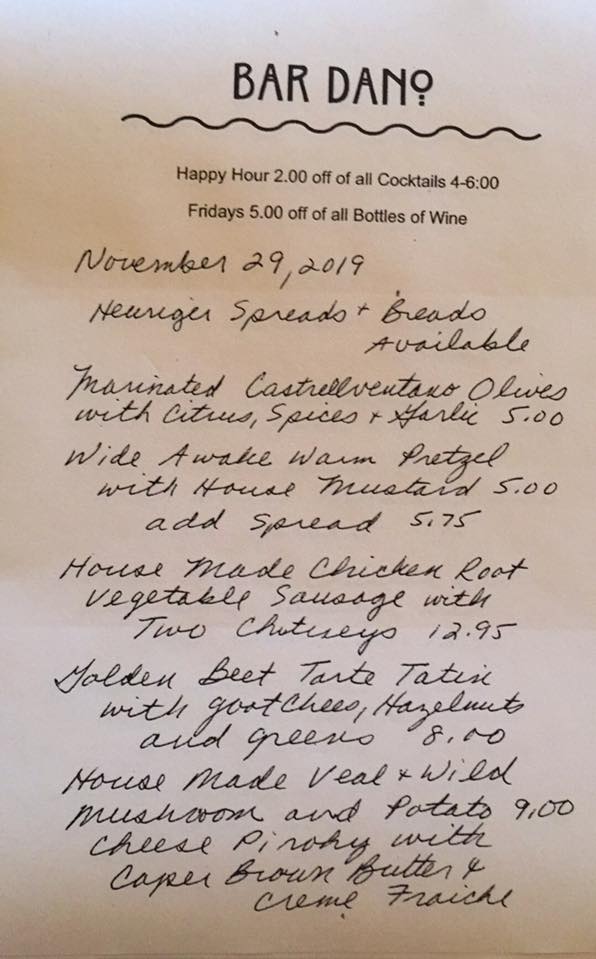 BAR DANO
Happy Hour 2.00 off of all Cocktails 4-6:00
Fridays 5.00 off of all Bottles of Wine
November 29, 2019
Heuriger Spreads + Breads
Available
Marinated Castrellventano Olives
with Citrus, Spices + Garlic 5.00
Wide Awake Warm Pretzel
with House Mustard 5.00
add spread 5.75
House Made Chicken Root
Vegetable Sausage with
Two Chutneys 12.95
Golden Beet Tarte Tatin
with goat Chees, Hazelnuts
and greens 8.00
House Made Veal + Wild
Mushroom and Potato 9.00
Cheese Pirohy with
Caper Brown Butter &
Creme Fraiche